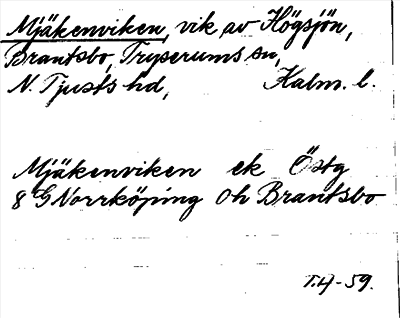 Mjäkenviken, vik av Högsjön,
Brantsbo, Tryserums sn,
N. Tjusts hd, Kalm. l.
Mjäkenviken ek Östg
8 G Norrköping 0h Brantsbo
T.H-59.